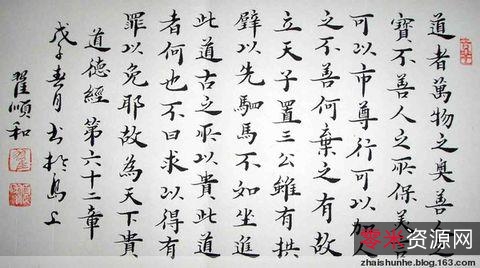 道者萬物之奧善人之
寶不善人之所保美言
可以市尊行可以加人
之不善何棄之有故
立天子置三公雖有拱
璧以先駟馬不如坐進
此道古之所以貴此道
者何也不曰求以得有
罪以免耶故為天下貴
道德經第六十二章
戊子春月书於島上
翟順和
零米资源网
zhaishunhe.blog.163.com